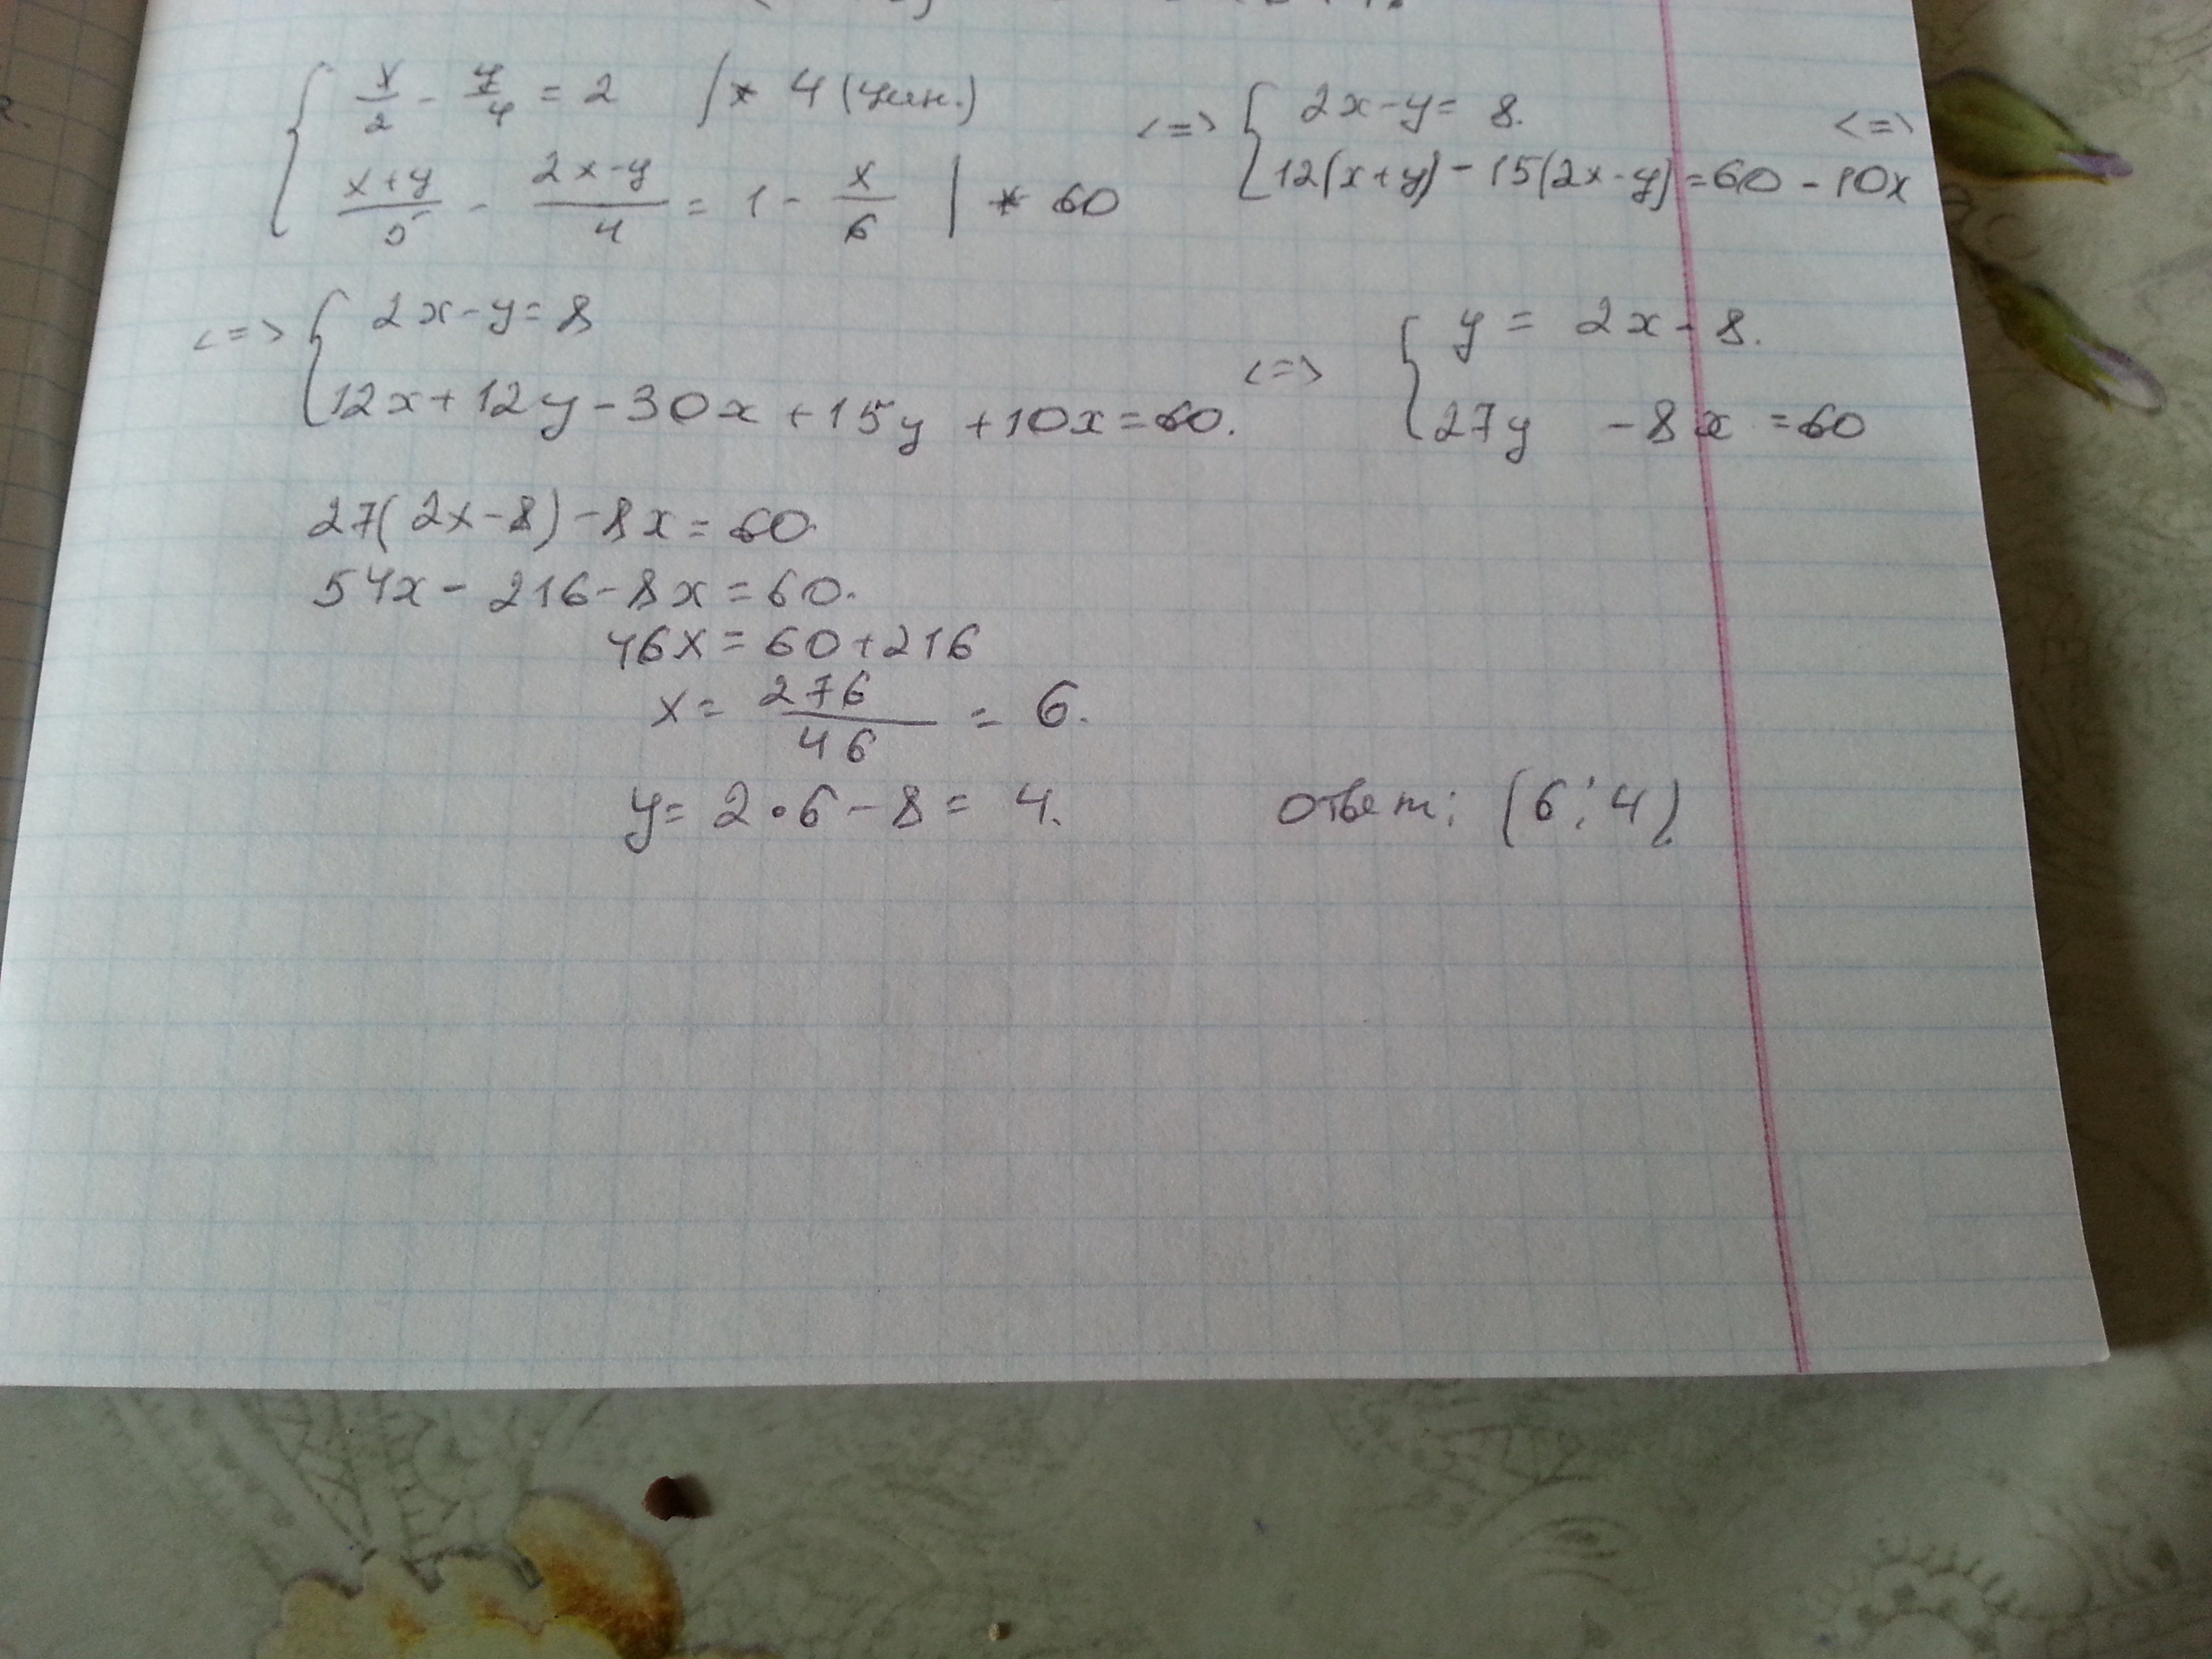 { x/2 - y/4 = 2 |* 4 (чин.) <=> { 2x-y= 8. <=>
x+y/5 - 2x-y/4 = 1 - x/6 | * 60 12(x+y)-15(2x-y)=60-10x
<=> { 2x-y=8 <=> { y = 2x-8.
12x+12y-30x+15y+10x=60. 27y -8x =60
27(2x-8)-8x=60.
54x-216-8x=60.
46x=60+216
x= 276/46 = 6.
y= 2·6-8= 4. ответ: (6; 4)